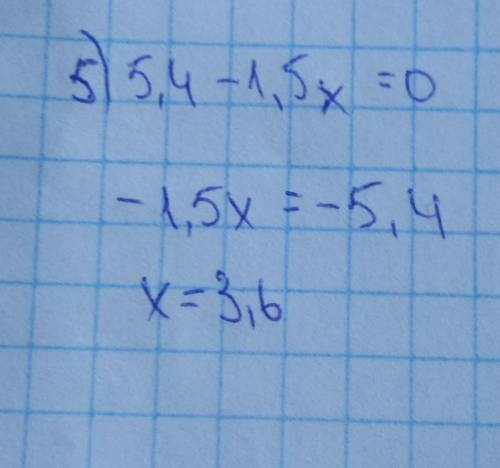 5) 5,4 - 1,5x = 0
-1,5x = -5,4
x = 3,6